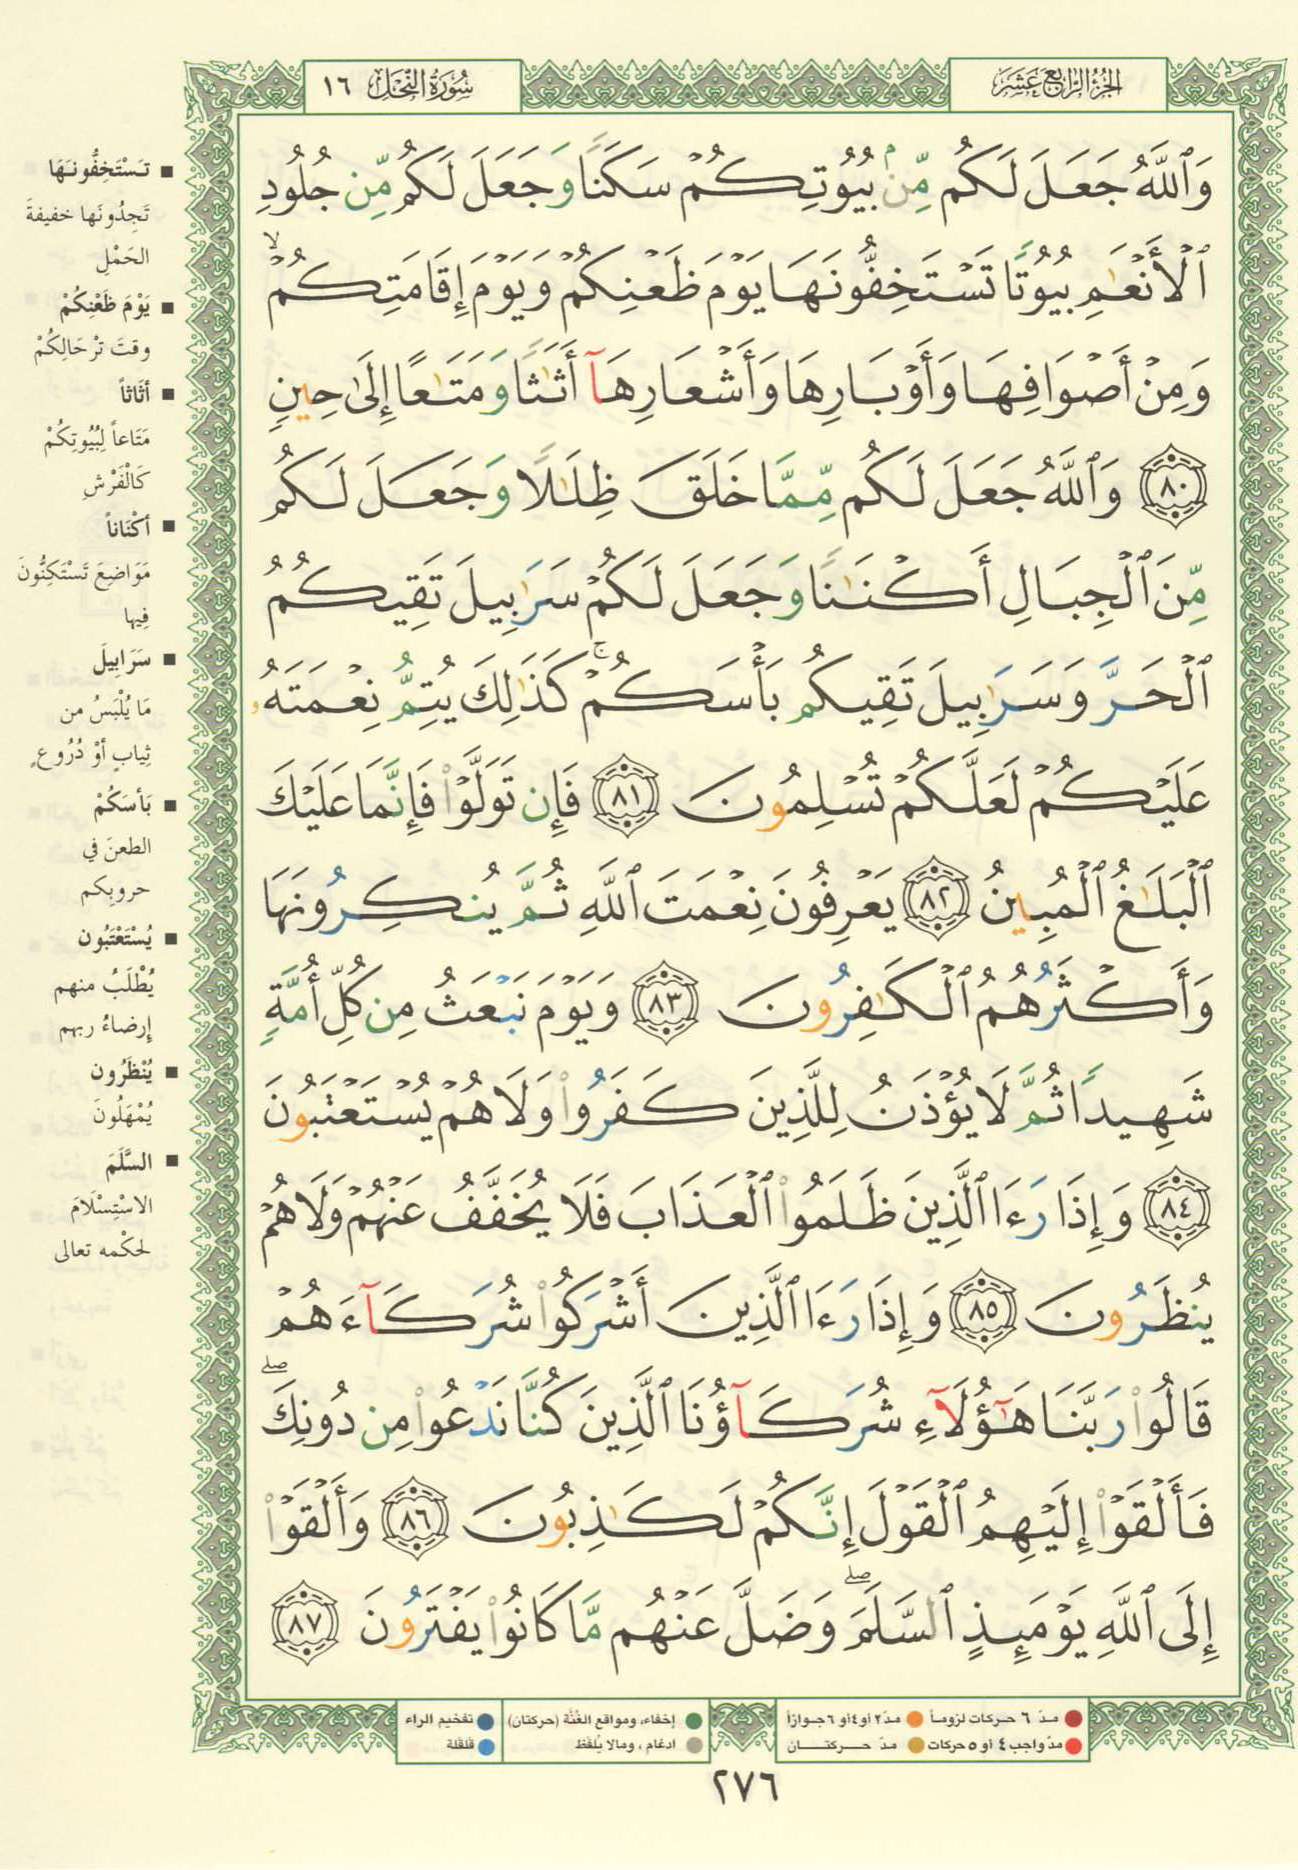 الجزء الرابع عشر
سورة النحل ١٦
وَٱللَّهُ جَعَلَ لَكُم مِّنۢ بُيُوتِكُمْ سَكَنًا وَجَعَلَ لَكُم مِّن جُلُودِ
ٱلْأَنْعَٰمِ بُيُوتًا تَسْتَخِفُّونَهَا يَوْمَ ظَعْنِكُمْ وَيَوْمَ إِقَامَتِكُمْ ۙ
وَمِنْ أَصْوَافِهَا وَأَوْبَارِهَا وَأَشْعَارِهَآ أَثَٰثًا وَمَتَٰعًا إِلَىٰ حِينٍ
٨٠ وَٱللَّهُ جَعَلَ لَكُم مِّمَّا خَلَقَ ظِلَٰلًا وَجَعَلَ لَكُم
مِّنَ ٱلْجِبَالِ أَكْنَٰنًا وَجَعَلَ لَكُمْ سَرَٰبِيلَ تَقِيكُمُ
ٱلْحَرَّ وَسَرَٰبِيلَ تَقِيكُم بَأْسَكُمْ ۚ كَذَٰلِكَ يُتِمُّ نِعْمَتَهُۥ
عَلَيْكُمْ لَعَلَّكُمْ تُسْلِمُونَ ٨١ فَإِن تَوَلَّوْا۟ فَإِنَّمَا عَلَيْكَ
ٱلْبَلَٰغُ ٱلْمُبِينُ ٨٢ يَعْرِفُونَ نِعْمَتَ ٱللَّهِ ثُمَّ يُنكِرُونَهَا
وَأَكْثَرُهُمُ ٱلْكَٰفِرُونَ ٨٣ وَيَوْمَ نَبْعَثُ مِن كُلِّ أُمَّةٍ
شَهِيدًا ثُمَّ لَا يُؤْذَنُ لِلَّذِينَ كَفَرُوا۟ وَلَا هُمْ يُسْتَعْتَبُونَ
٨٤ وَإِذَا رَءَا ٱلَّذِينَ ظَلَمُوا۟ ٱلْعَذَابَ فَلَا يُخَفَّفُ عَنْهُمْ وَلَا هُمْ
يُنظَرُونَ ٨٥ وَإِذَا رَءَا ٱلَّذِينَ أَشْرَكُوا۟ شُرَكَآءَهُمْ
قَالُوا۟ رَبَّنَا هَٰٓؤُلَآءِ شُرَكَآؤُنَا ٱلَّذِينَ كُنَّا نَدْعُوا۟ مِن دُونِكَ ۖ
فَأَلْقَوْا۟ إِلَيْهِمُ ٱلْقَوْلَ إِنَّكُمْ لَكَٰذِبُونَ ٨٦ وَأَلْقَوْا۟
إِلَى ٱللَّهِ يَوْمَئِذٍ ٱلسَّلَمَ ۖ وَضَلَّ عَنْهُم مَّا كَانُوا۟ يَفْتَرُونَ ٨٧
■ تَسْتَخِفُّونَهَا
تَجِدُونَها خفيفةَ
الحَمْلِ
■ يَوْمَ ظَعْنِكُمْ
وقتَ تَرْحَالِكُمْ
■ أَثَاثاً
مَتَاعاً لِبُيُوتِكُمْ
كَالْفَرْشِ
■ أَكْنَاناً
مَوَاضِعَ تَسْتَكِنُّونَ
فِيها
■ سَرَابِيلَ
مَا يُلْبَسُ من
ثِيابٍ أَوْ دُرُوعٍ
■ بَأْسَكُمْ
الطعنَ في
حروبِكم
■ يُسْتَعْتَبُون
يُطْلَبُ منهم
إِرضاءُ ربهم
■ يُنْظَرُون
يُمْهَلُونَ
■ السَّلَمَ
الاسْتِسْلَامَ
لحُكْمه تعالى
مدّ ٦ حركات لزوماً مدّ ٢ أو ٤ أو ٦ جوازاً
مدّ واجب ٤ أو ٥ حركات مدّ حركتان
إخفاء، ومواقع الغُنَّة (حركتان) تفخيم الراء
ادغام ، ومالا يُلفظ قلقلة
٢٧٦